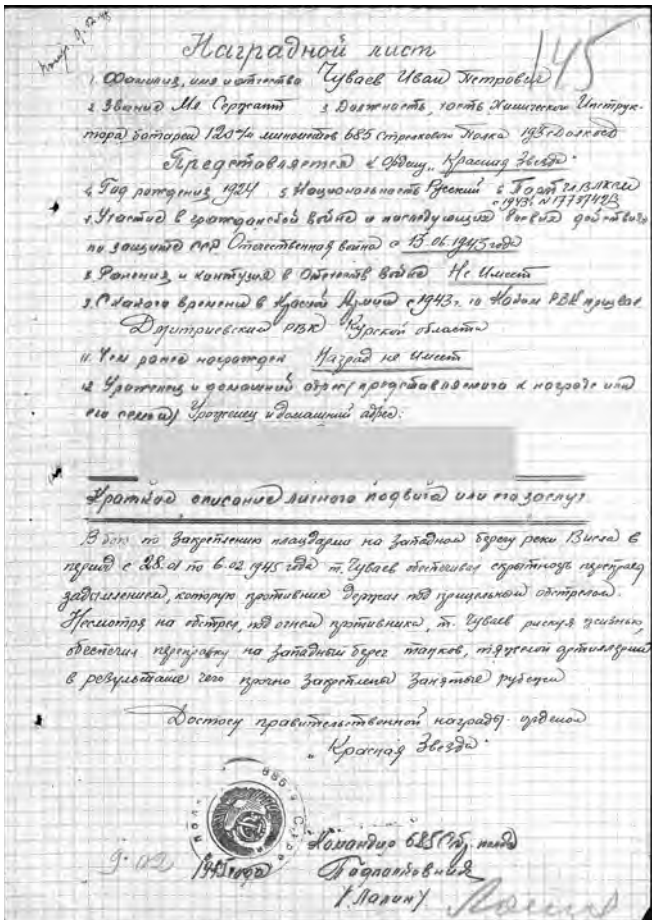 145
Наградной лист
1. Фамилия, имя и отчество Чуваев Иван Петрович
2 Звание Мл. Сержант 3 Должность, часть Химический Инструк-
тора батареи 120 м/м минометов 685 Стрелкового Полка 193
Представляется к Ордену "Красная Звезда"
4. Год рождения 1924 5 Национальность Русский 6 Парт чл ВЛКСМ
с 1943г N
7. Участие в гражданской войне и последующих боевых действиях
по защите ССР Отечественная война с 13.06.1943 года
8. Ранения и контузия в Отечеств войне Не Имеет
9. С какого времени в Красной Армии с 1943г. 10 Каким РВК призван
Дмитриевским РВК Курской области
11. Чем ранее награжден Наград не имеет
12 Уроженец и домашний адрес/представляемого к награде или
его семьи/ Уроженец и домашний адрес:
Краткое описание личного подвига или его заслуг
В бою по закреплению плацдарма на западном берегу реки Висла в
период с 28.01 по 6.02.1945 года т. Чуваев обеспечивал скрытность переправ
задымлением, которую противник держал под прицельным обстрелом.
Несмотря на обстрел, под огнем противника, т. Чуваев рискуя жизнью,
обеспечил переправку на западный берег танков, тяжелой артиллерии
в результате чего прочно закреплены занятые рубежи
Достоен правительственной награды орденом
"Красная Звезда"
685
Командир 685 Стр. полка
9.02 1945 года Подполковник
/Лапин/